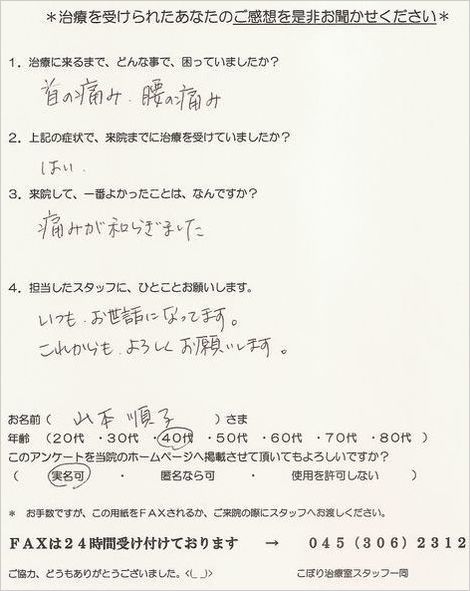 ＊治療を受けられたあなたのご感想を是非お聞かせください＊
１．治療に来るまで、どんな事で、困っていましたか？
首の痛み．腰の痛み
２．上記の症状で、来院までに治療を受けていましたか？
はい．
３．来院して、一番よかったことは、なんですか？
痛みが和らぎました
４．担当したスタッフに、ひとことお願いします。
いつも．お世話になってます。
これからも．よろしくお願いします。
お名前（ 山本 順子 ）さま
年齢 （20代 ・30代 ・40代 ・50代 ・60代 ・70代 ・80代 ）
このアンケートを当院のホームページへ掲載させて頂いてもよろしいですか？
（ 実名可 ・ 匿名なら可 ・ 使用を許可しない ）
＊ お手数ですが、この用紙をＦＡＸされるか、ご来院の際にスタッフへお渡しください。
ＦＡＸは２４時間受け付けております → ０４５（３０６）２３１２
ご協力、どうもありがとうございました。<(_ _)> こぼり治療室スタッフ一同